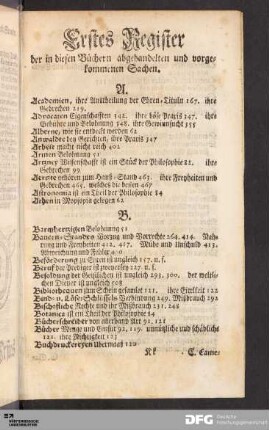 Erstes Register
der in diesen Büchern abgehandelten und vorge-
kommenen Sachen.
A.
Academien, ihre Austheilung der Ehren-Tituln 167. ihre
Gebrechen
Advocaten Eigenschafften 148. ihre böse Praxis 347. ihre
Gebühr und Belohnung 348. ihre Gewinnsucht 355
Alberne, wie sie entdeckt werden 62
Anwaldre bey Gerichten, ihre Praxis 347
Arbeit macht nicht reich 402
Armen Belohnung 51
Artzney Wissenschafft ist ein Stück der Philosophie 21. ihre
Gebrechen 99
Aertzte gehören zum Haus-Stand 463. ihre Freyheiten und
Gebrechen 465. welches die besten 467
Astronomia ist ein Theil der Philosophie 14
Athen in gelegen 62
B.
Barmhertzigen Belohnung 51
Bauern-Standes Vorzug und Vorrechte 264. 414. Nah-
rung und Kranckheiten 412. 417. Mühe und Unschuld 413.
und Fehler 410
Beförderung zu Ehren ist ungleich 157. u. f.
Beruf der Prediger ist zweyerley 227. u. f.
Besoldung der Geistlichen ist ungleich 293. 300. der weltli-
chen Diener ist ungleich 508
Bibliothequen zum Schein gesamlet 121. ihre Eitelkeit 122
Bind- u. Löse-Schlüssels Verbietung 249. Mißbrauch 292
Bischofliche Rechte und ihr Mißbrauch 231. 248
Botanica ist ein Theil der Philosophie 14
Bücherschreiber von allerhand Art 91. 121
Bücher Menge und Einfluß 92. 119. unnützliche und schädliche
121. ihre Nichtigkeit 123
Buchdruckereyen Uberfluß 120
Kk
C. Came-
DFG
Deutsche
Forschungsgemeinschaft